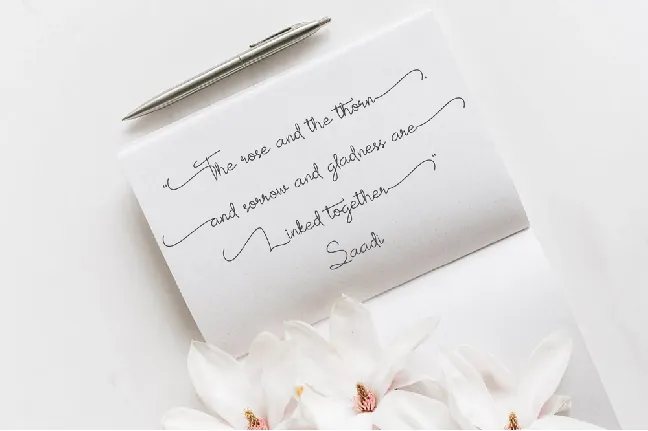 "The rose and the thorn.
and sorrow and gladness are
Linked together"
Saadi